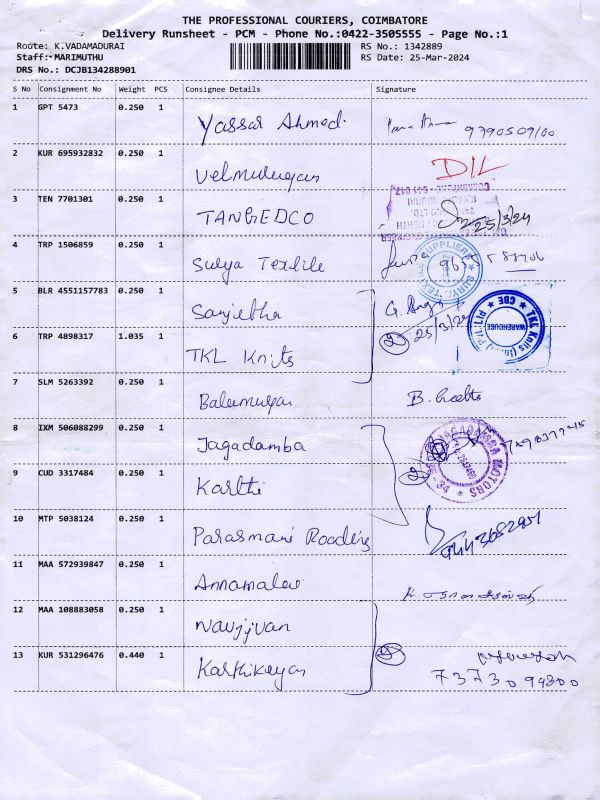 THE PROFESSIONAL COURIERS, COIMBATORE
Delivery Runsheet - PCM - Phone No.:0422-3505555 - Page No.:1
Route: K.VADAMADURAI RS No.: 1342889
Staff: MARIMUTHU RS Date: 25-Mar-2024
DRS No.: DCJB134288901
S No Consignment No Weight PCS Consignee Details Signature
1 GPT 5473 0.250 1 Yassar Ahmed
2 KUR 695932832 0.250 1 Velmurugan D/L
3 TEN 7701301 0.250 1 TANGEDCO 25/3/24
4 TRP 1506859 0.250 1 Surya Textile
5 BLR 4551157783 0.250 1 Sanjeebha
6 TRP 4898317 1.035 1 TKL Knits 2 25/3/24
TKL Knits (India) P LTD CBE WAREHOUSE
7 SLM 5263392 0.250 1 Balamurugan B.
8 IXM 506088299 0.250 1 Jagadamba
JAGADAMBA MOTORS
9 CUD 3317484 0.250 1 Karthi
10 MTP 5038124 0.250 1 Parasmani
11 MAA 572939847 0.250 1 Annamalai
12 MAA 108883058 0.250 1 Navjjvan
13 KUR 531296476 0.440 1 Karthikeyan 7373094800